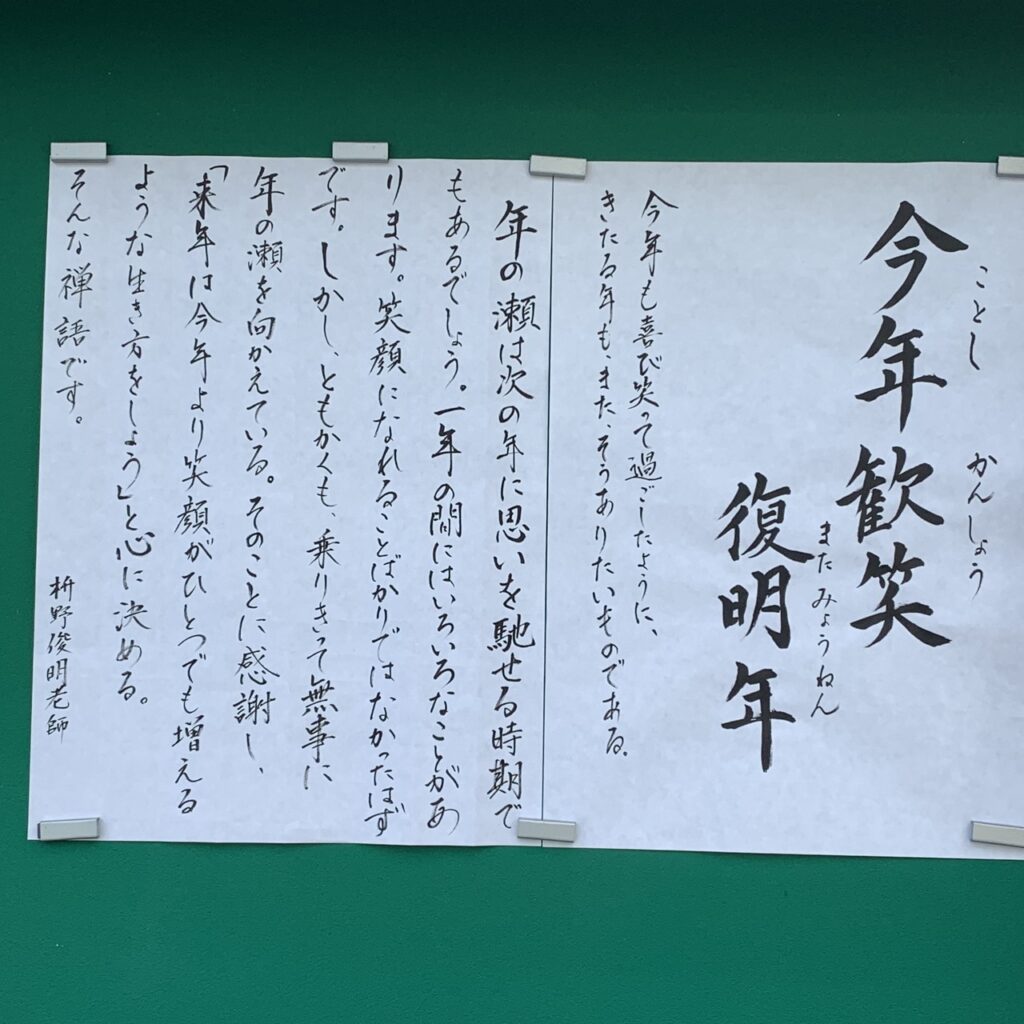 今年歓笑
ことし かんしょう
復明年
また みょうねん
今年も喜び笑って過ごしたように、
きたる年も、また、そうありたいものである。
年の瀬は次の年に思いを馳せる時期で
もあるでしょう。一年の間にはいろいろなことがあ
ります。笑顔になれることばかりではなかったはず
です。しかし、ともかくも、乗りきって無事に
年の瀬を向かえている。そのことに感謝し、
「来年は今年より笑顔がひとつでも増える
ような生き方をしよう」と心に決める。
そんな禅語です。
枡野俊明老師